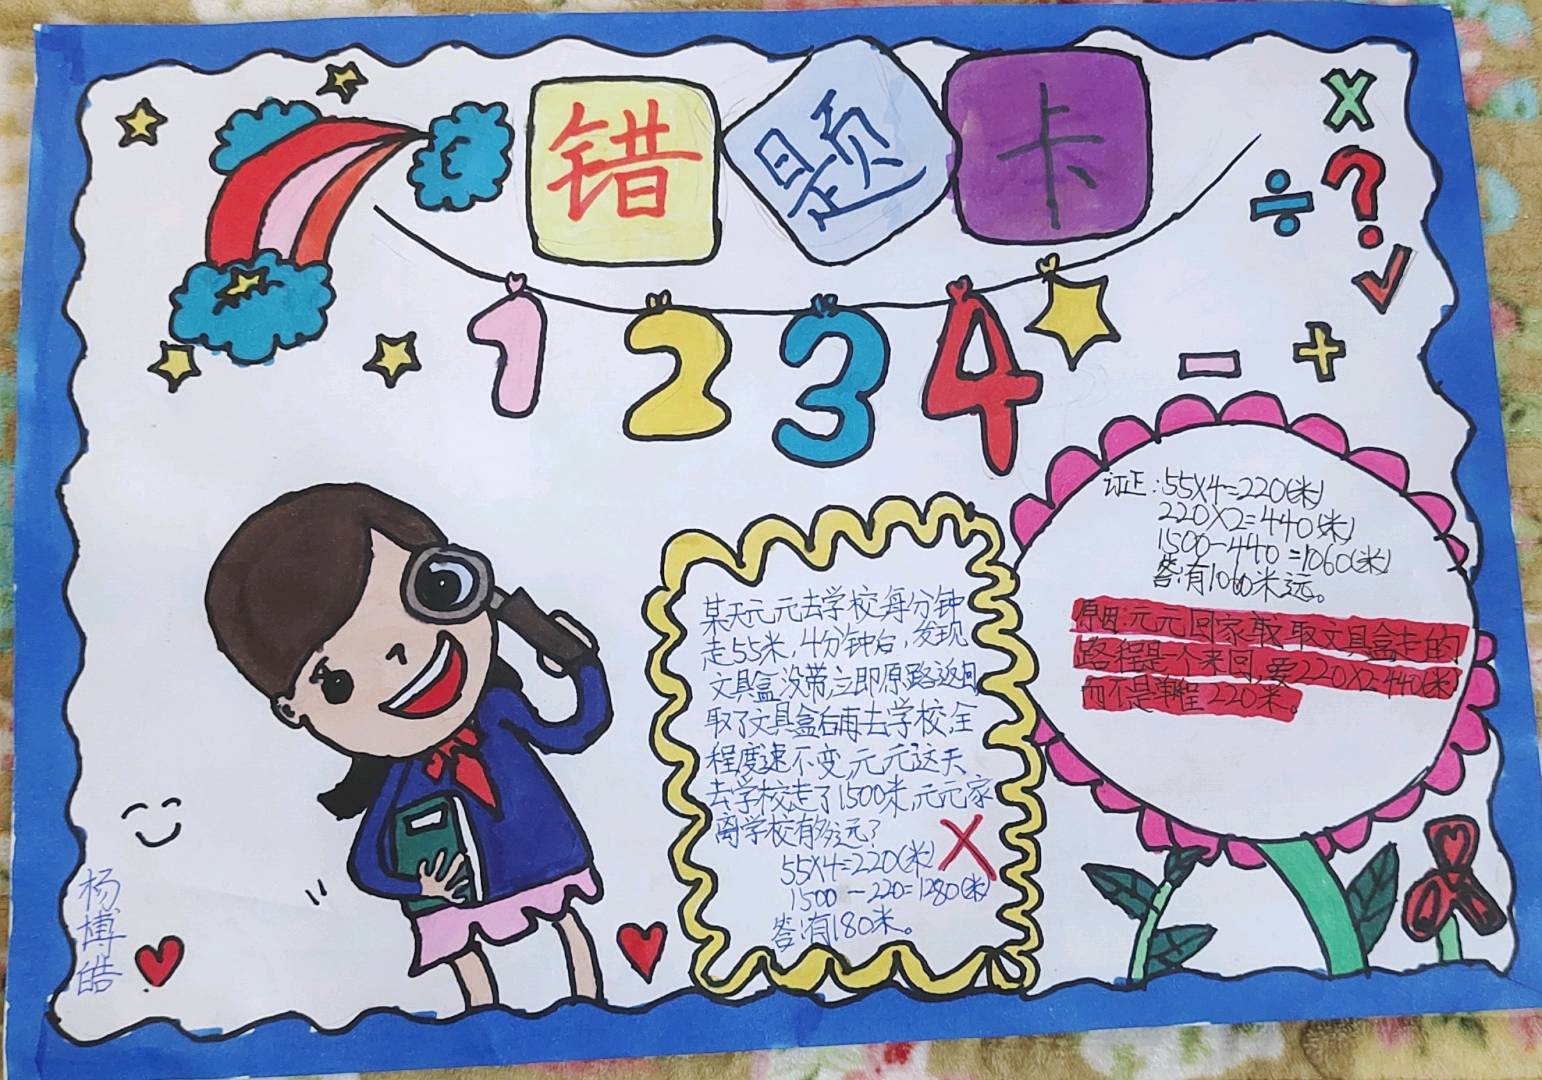 错题卡
1 2 3 4
某天元元去学校,每分钟
走55米,4分钟后,发现
文具盒没带,立即原路返回
取了文具盒后再去学校,全
程度速不变,元元这天
去学校走了1500米,元元家
离学校有多远?
55×4=220(米)
1500-220=1280(米)
答:有180米。
订正:55×4=220(米)
220×2=440(米)
1500-440=1060(米)
答:有1060米远。
原因:元元回家取取文具盒走的
路程是一个来回,要220×2=440(米)
而不是单程220米。
杨博皓